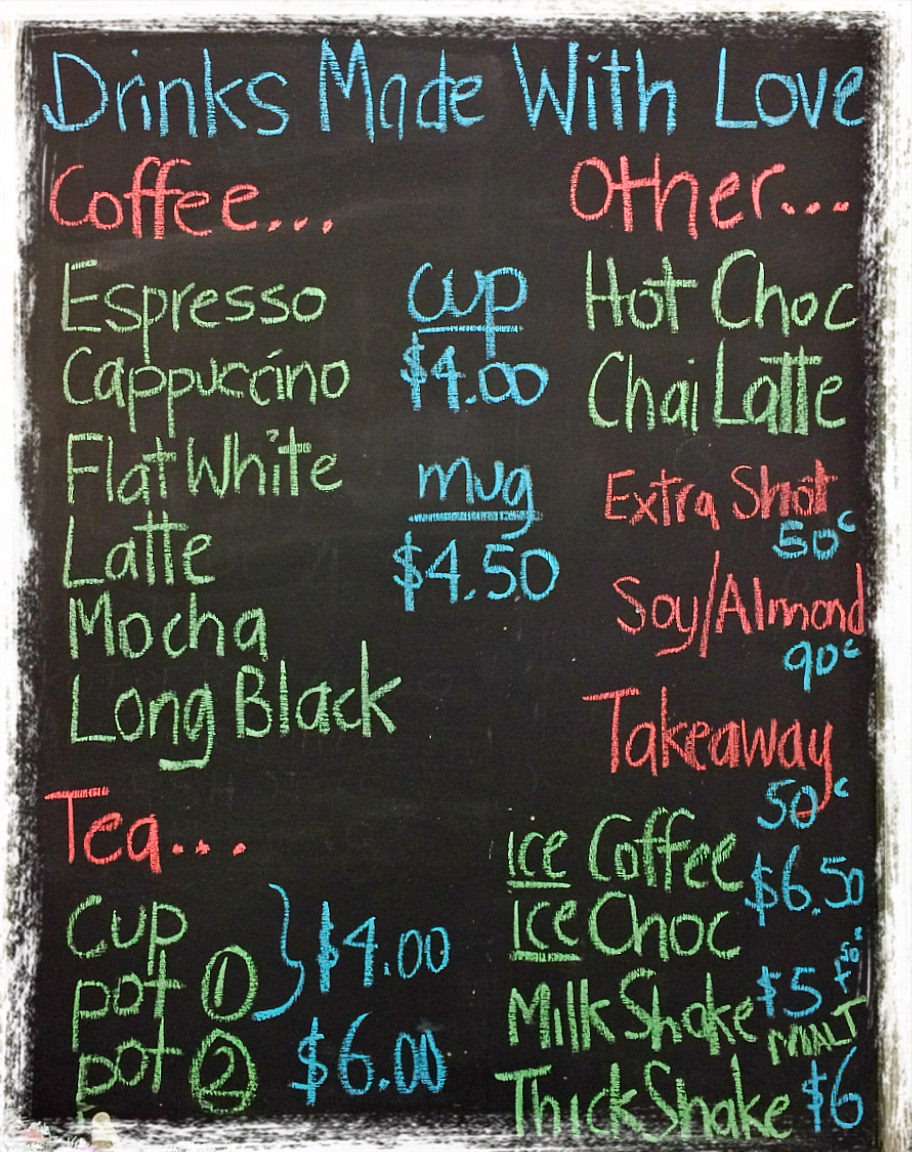 Drinks Made With Love
Coffee...
Espresso
Cappuccino
Flat White
Latte
Mocha
Long Black
cup
$4.00
mug
$4.50
Tea...
Cup
pot 1
$4.00
pot 2
$6.00
Other...
Hot Choc
Chai Latte
Extra Shot
50c
Soy/Almond
90c
Takeaway
50c
Ice Coffee
$6.50
Ice Choc
MilkShake $5
+50c
MALT
ThickShake $6